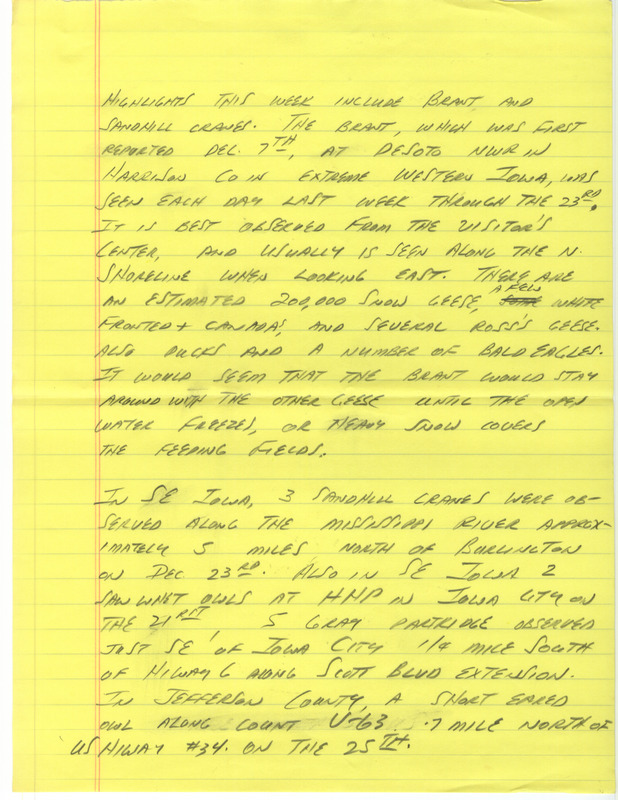 HIGHLIGHTS THIS WEEK INCLUDE BRANT AND
SANDHILL CRANES. THE BRANT, WHICH WAS FIRST
REPORTED DEC. 7TH, AT DESOTO NWR IN
HARRISON CO IN EXTREME WESTERN IOWA, WAS
SEEN EACH DAY LAST WEEK THROUGH THE 23RD.
IT IS BEST OBSERVED FROM THE VISITOR'S
CENTER, AND USUALLY IS SEEN ALONG THE N.
SHORELINE WHEN LOOKING EAST. THERE ARE
AN ESTIMATED 200,000 SNOW GEESE, A FEW WHITE
FRONTED + CANADAS, AND SEVERAL ROSS'S GEESE.
ALSO DUCKS AND A NUMBER OF BALD EAGLES.
IT WOULD SEEM THAT THE BRANT WOULD STAY
AROUND WITH THE OTHER GEESE UNTIL THE OPEN
WATER FREEZES, OR HEAVY SNOW COVERS
THE FEEDING FIELDS.
IN SE IOWA, 3 SANDHILL CRANES WERE OB-
SERVED ALONG THE MISSISSIPPI RIVER APPROX-
IMATELY 5 MILES NORTH OF BURLINGTON
ON DEC. 23RD. ALSO IN SE IOWA 2
SAW WHET OWLS AT HHP IN IOWA CITY ON
THE 21RST 5 GRAY PARTRIDGE OBSERVED
JUST SE OF IOWA CITY 1/4 MILE SOUTH
OF HIWAY 6 ALONG SCOTT BLVD EXTENSION.
IN JEFFERSON COUNTY, A SHORT EARED
OWL ALONG COUNT V-63 .7 MILE NORTH OF
US HIWAY #34. ON THE 25TH.